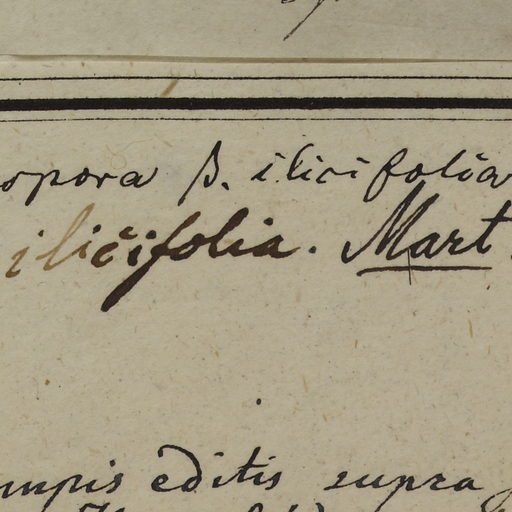 ospora β. ilicifolia
ilicifolia. Mart.
umpis editis supra